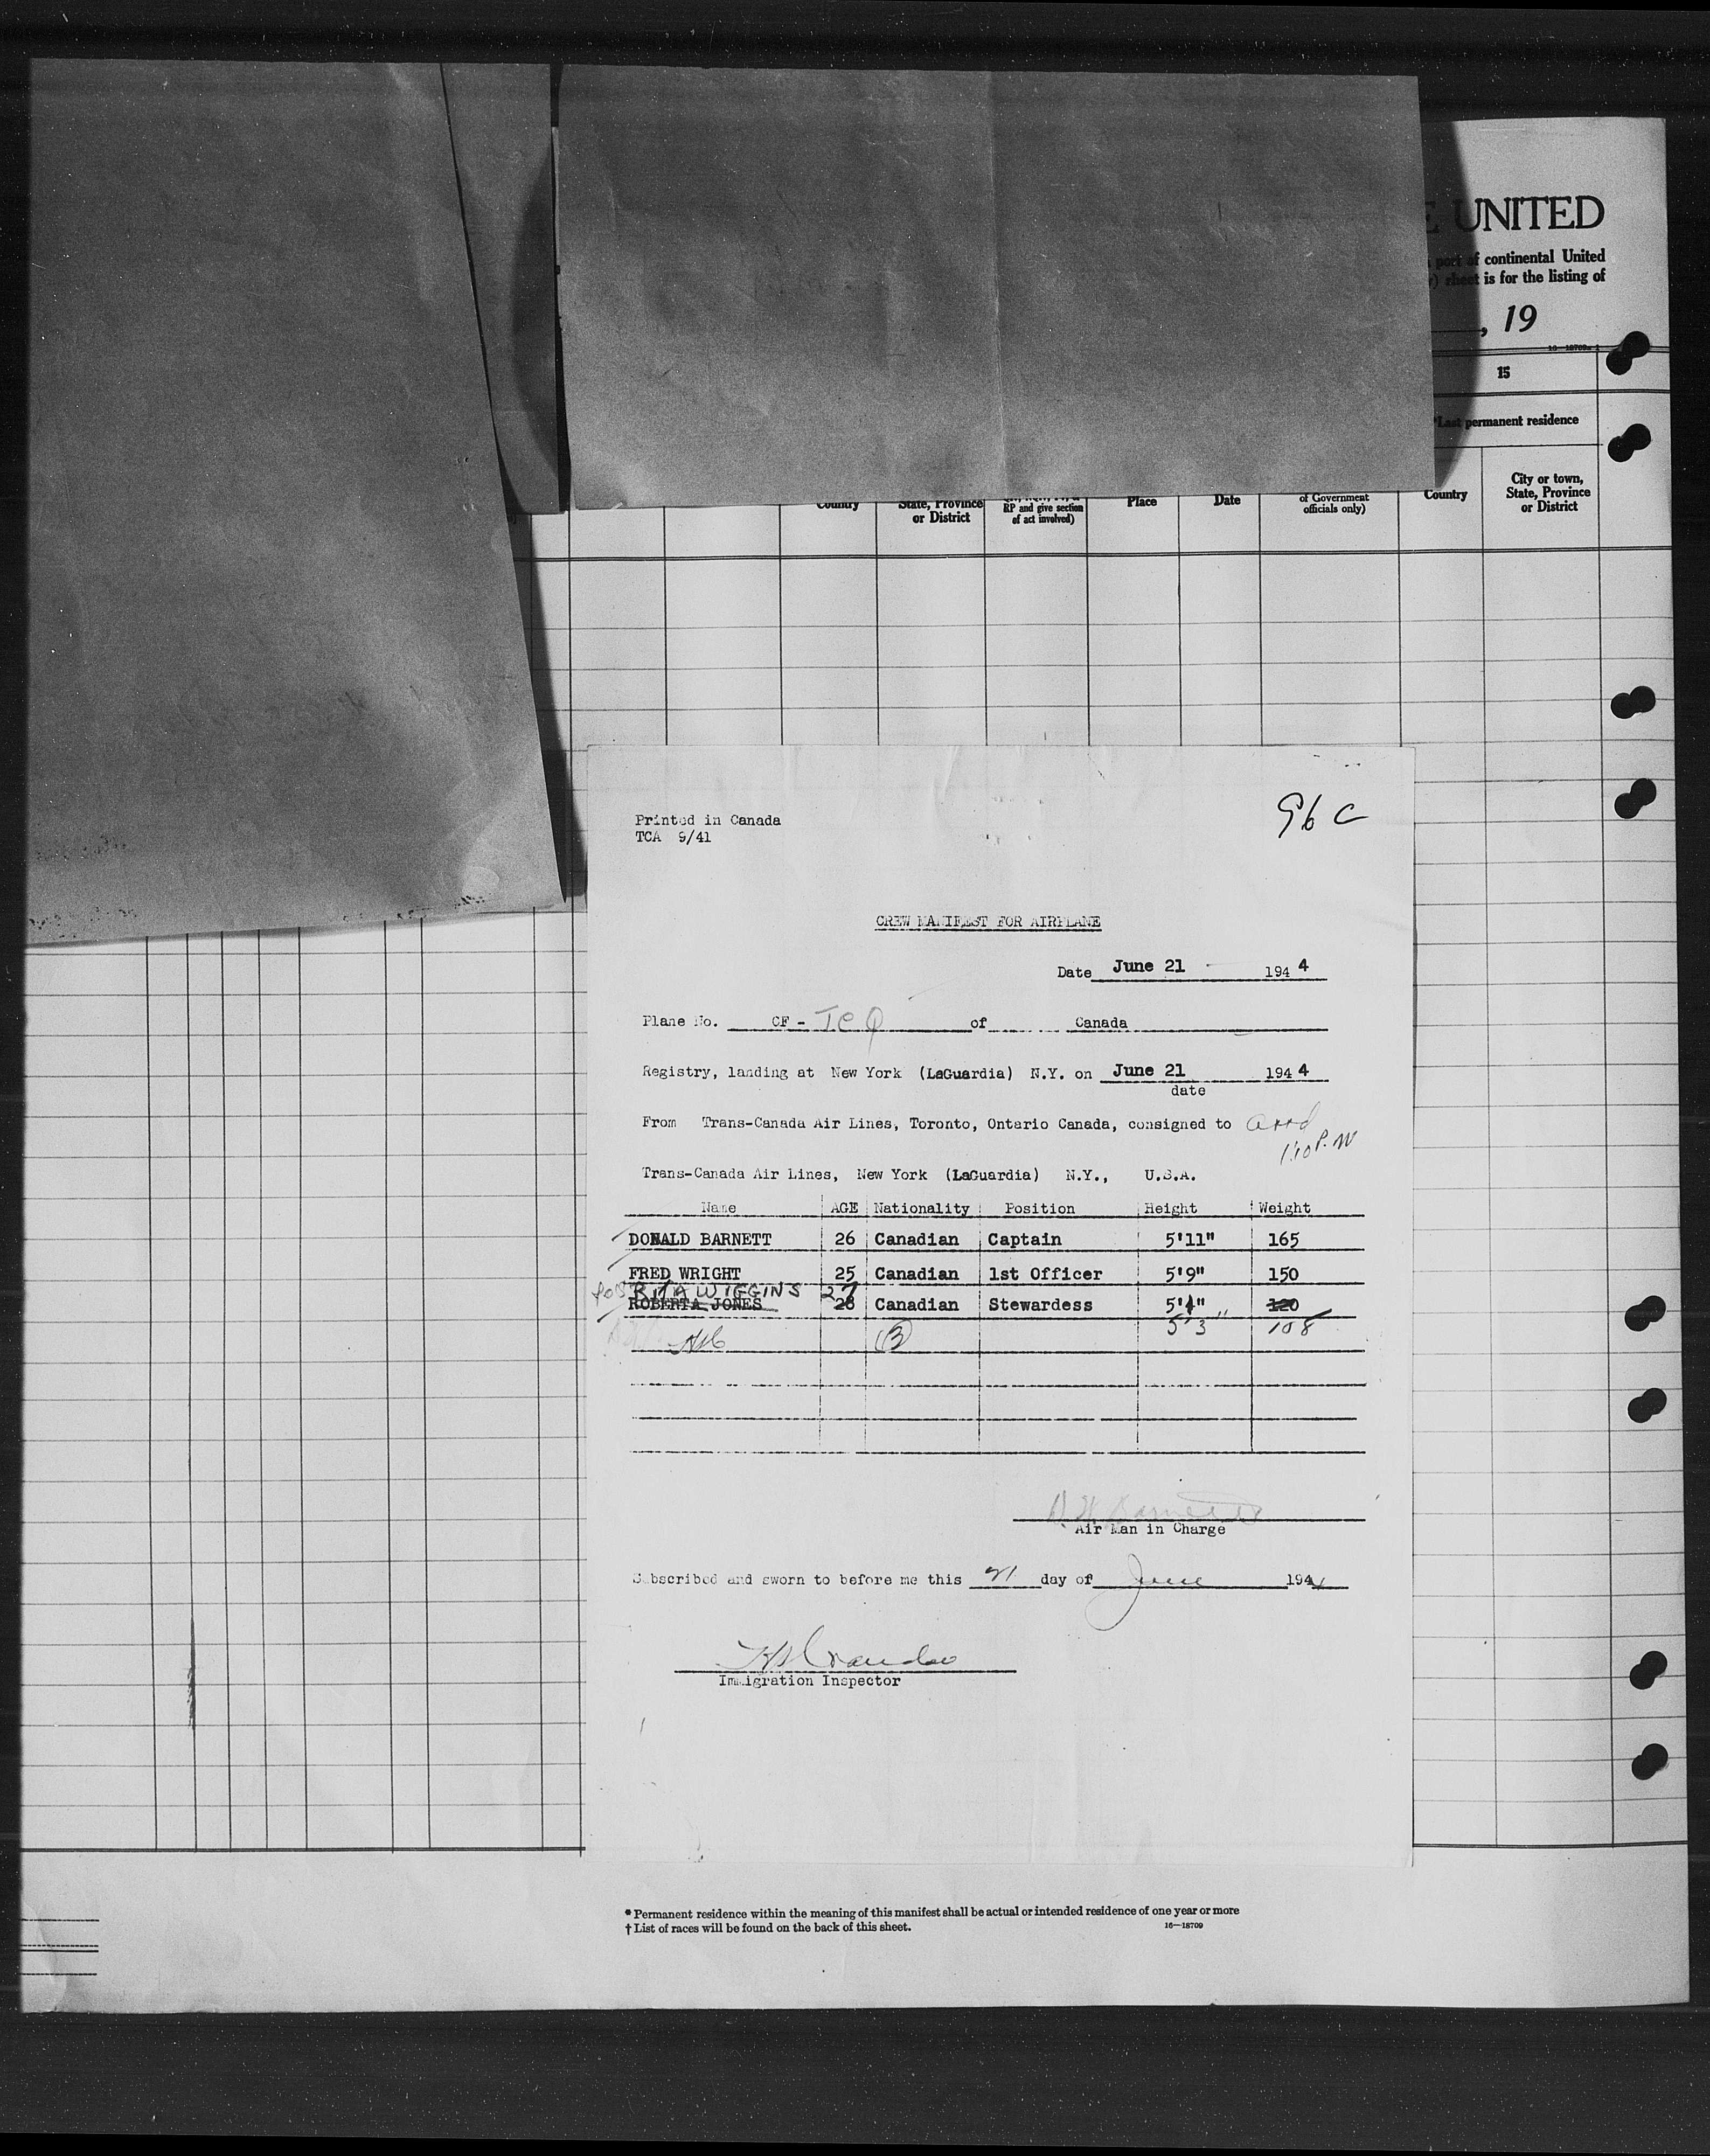 UNITED
continental United
is for the listing of
, 19
15
permanent residence
Country
State, Province
or District
RP and give section
of act involved)
Place
Date
of Government
officials only)
Country
City or town,
State, Province
or District
Printed in Canada
TCA 9/41
96 C
CREW MANIFEST FOR AIRPLANE
Date June 21 1944
Plane No. CF - TCQ of Canada
Registry, landing at New York (LaGuardia) N.Y. on June 21 1944
date
From Trans-Canada Air Lines, Toronto, Ontario Canada, consigned to arrd
1:10 P.M
Trans-Canada Air Lines, New York (LaGuardia) N.Y., U.S.A.
Name AGE Nationality Position Height Weight
DONALD BARNETT 26 Canadian Captain 5'11" 165
FRED WRIGHT 25 Canadian 1st Officer 5'9" 150
RITA WIGGINS 27
ROBERTA JONES 28 Canadian Stewardess 5'4" 120
5'3" 108
(3)
Air Man in Charge
Subscribed and sworn to before me this 21 day of June 1944
Immigration Inspector
* Permanent residence within the meaning of this manifest shall be actual or intended residence of one year or more
† List of races will be found on the back of this sheet.
16—18709